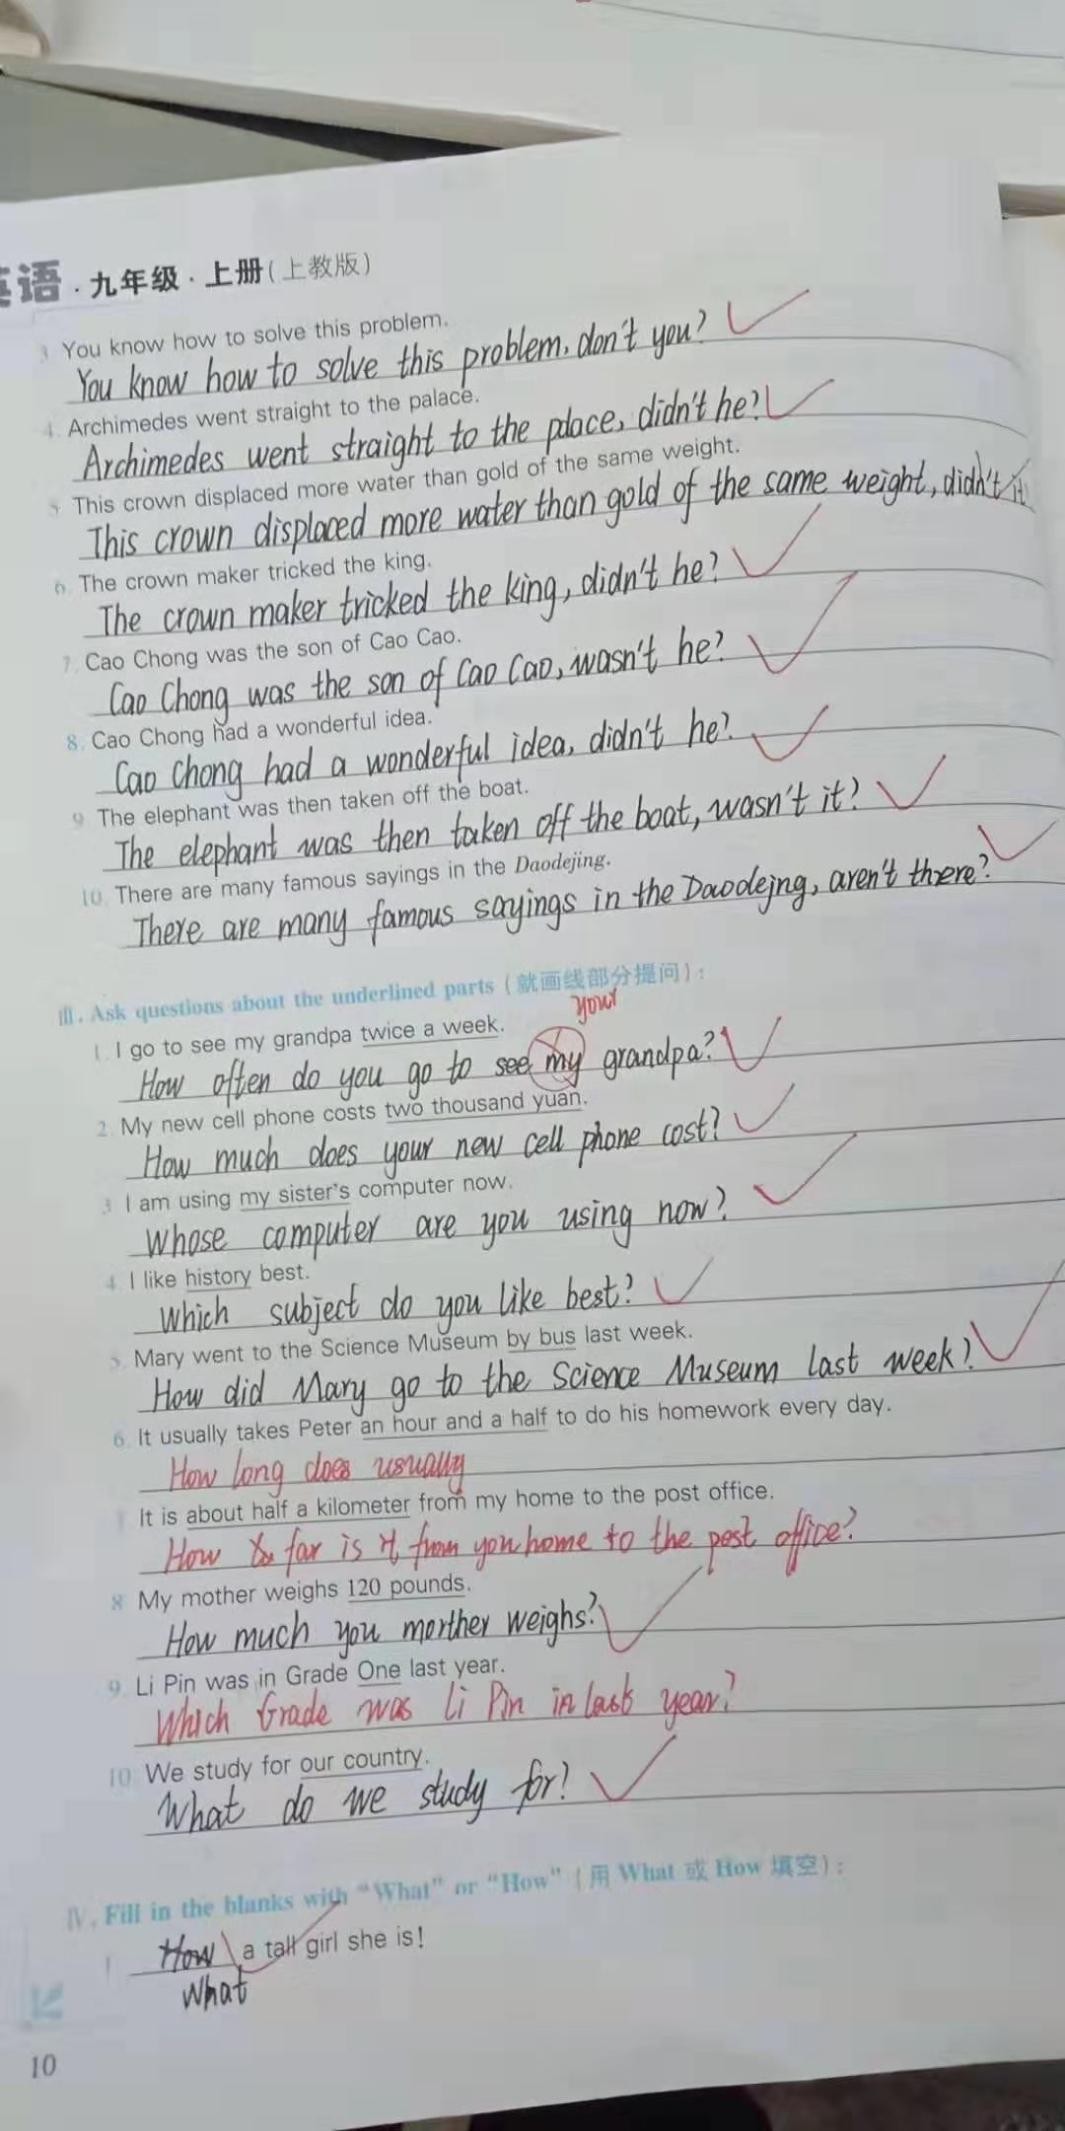 英语·九年级·上册(上教版)
3. You know how to solve this problem.
You know how to solve this problem, don't you?
4. Archimedes went straight to the palace.
Archimedes went straight to the place, didn't he?
5. This crown displaced more water than gold of the same weight.
This crown displaced more water than gold of the same weight, didn't it
6. The crown maker tricked the king.
The crown maker tricked the king, didn't he?
7. Cao Chong was the son of Cao Cao.
Cao Chong was the son of Cao Cao, wasn't he?
8. Cao Chong had a wonderful idea.
Cao Chong had a wonderful idea, didn't he?
9. The elephant was then taken off the boat.
The elephant was then taken off the boat, wasn't it?
10. There are many famous sayings in the Daodejing.
There are many famous sayings in the Daodejng, aren't there?
Ⅲ. Ask questions about the underlined parts (就画线部分提问):
your
1. I go to see my grandpa twice a week.
How often do you go to see my grandpa?
2. My new cell phone costs two thousand yuan.
How much does your new cell phone cost?
3. I am using my sister's computer now.
Whose computer are you using now?
4. I like history best.
Which subject do you like best?
5. Mary went to the Science Museum by bus last week.
How did Mary go to the Science Museum last week?
6. It usually takes Peter an hour and a half to do his homework every day.
How long does usually
7. It is about half a kilometer from my home to the post office.
How far is it from you home to the post office?
8. My mother weighs 120 pounds.
How much you morther weighs?
9. Li Pin was in Grade One last year.
Which Grade was Li Pin in last year?
10. We study for our country.
What do we study for?
Ⅳ. Fill in the blanks with "What" or "How" (用 What 或 How 填空):
1. How a tall girl she is!
What
10